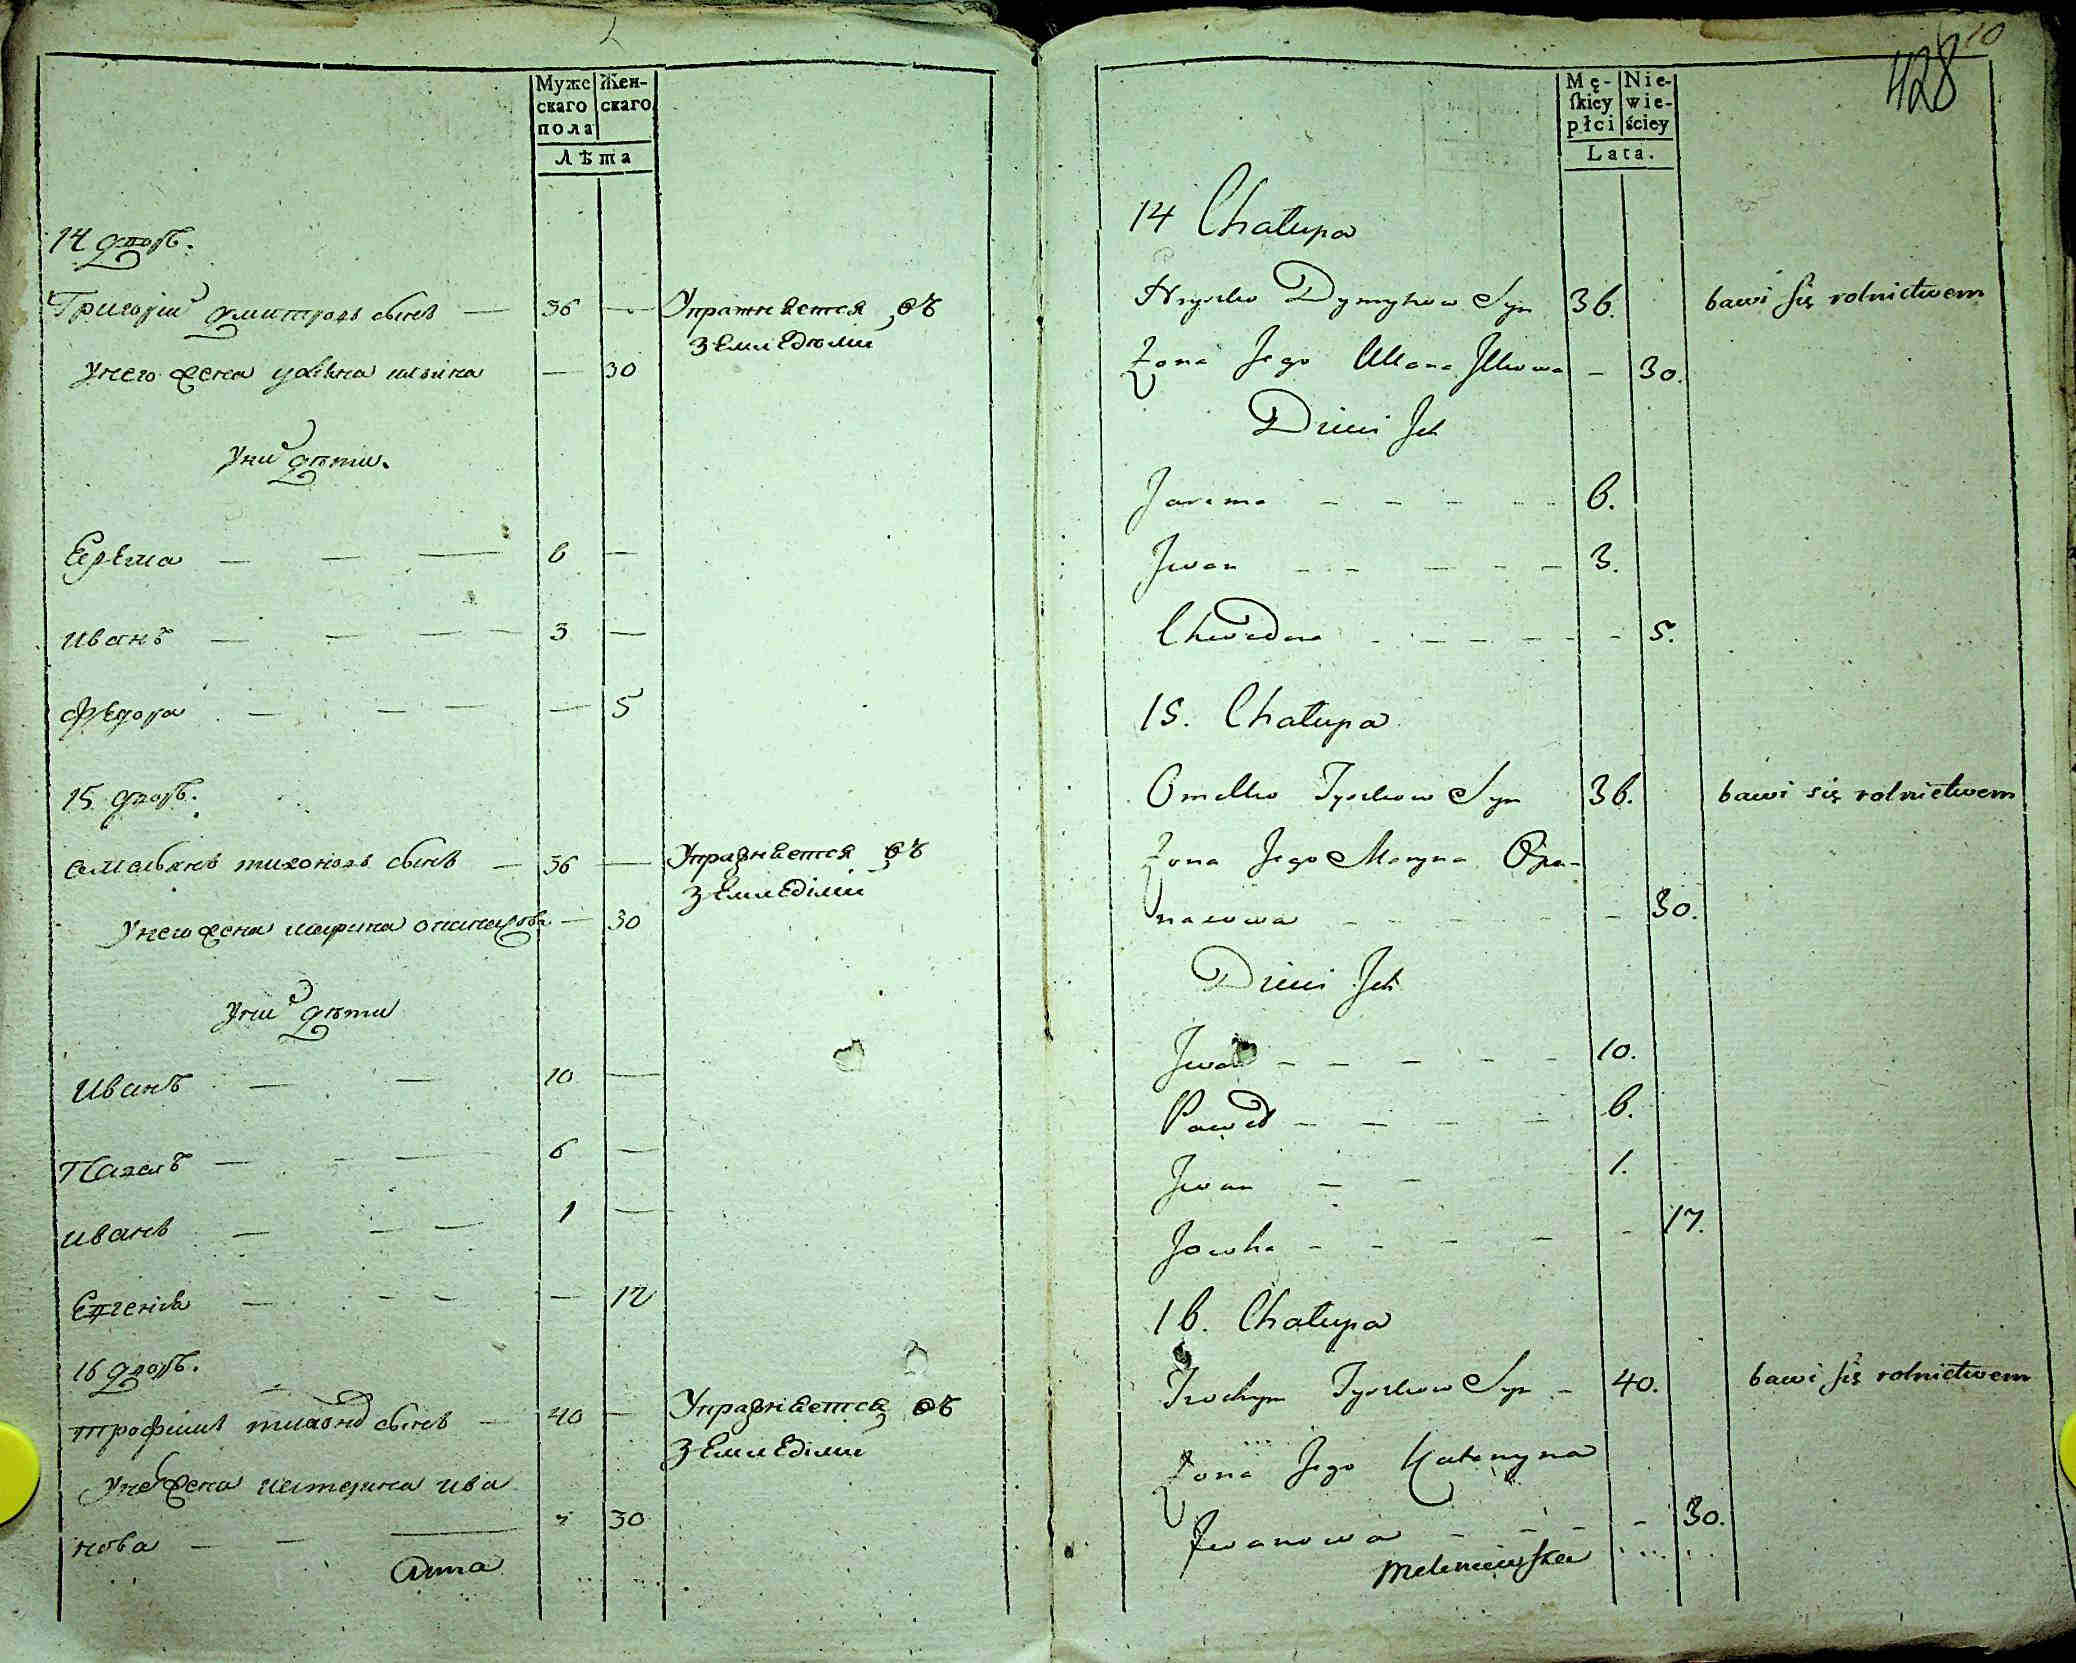 Муже Жен-
скаго скаго
пола
Лѣта
14 дворъ.
Григорій дмитровъ сынъ — 36 — Упражняется въ
земледелии
унего жена ульяна ильина — 30
уних дѣти.
Ерема — — — 6 —
иванъ — — — — 3 —
федора — — — — 5
15 дворъ.
омельянъ тихоновъ сынъ — 36 — Упражняется въ
земледелии
унего жена марина опанасова — 30
уних дѣти
иванъ — — 10 —
Павелъ — — — 6 —
иванъ — — — 1 —
Евгенія — — — — 12
16 дворъ.
трофимъ тихонов сынъ — 40 — Упражняется въ
земледелии
унего жена катерина ива
нова — — — 30
Anna
10
428
Mę- Nie-
skiey wie-
płci ściey
Lata.
14 Chałupa
Hryćko Dymytrow Syn 36. bawi się rolnictwem
Zona Jego Ullana Illkowa — 30.
Dzieci Jch
Jarema — — — — — 6.
Jwan — — — — — 3.
Chwedora — — — — — — 5.
15. Chałupa
Omelko Tyszkow Syn 36. bawi się rolnictwem
Zona Jego Maryna Opa-
nasowa — — — — — — 30.
Dzieci Jch
Jwan — — — — — 10.
Paweł — — — — 6.
Jwan — — 1.
Jowha — — — — — 17.
16. Chałupa
Trochym Tyszkow Syn — 40. bawi się rolnictwem
Zona Jego Kateryna
Jwanowa — — — — 30.
Meleniewska